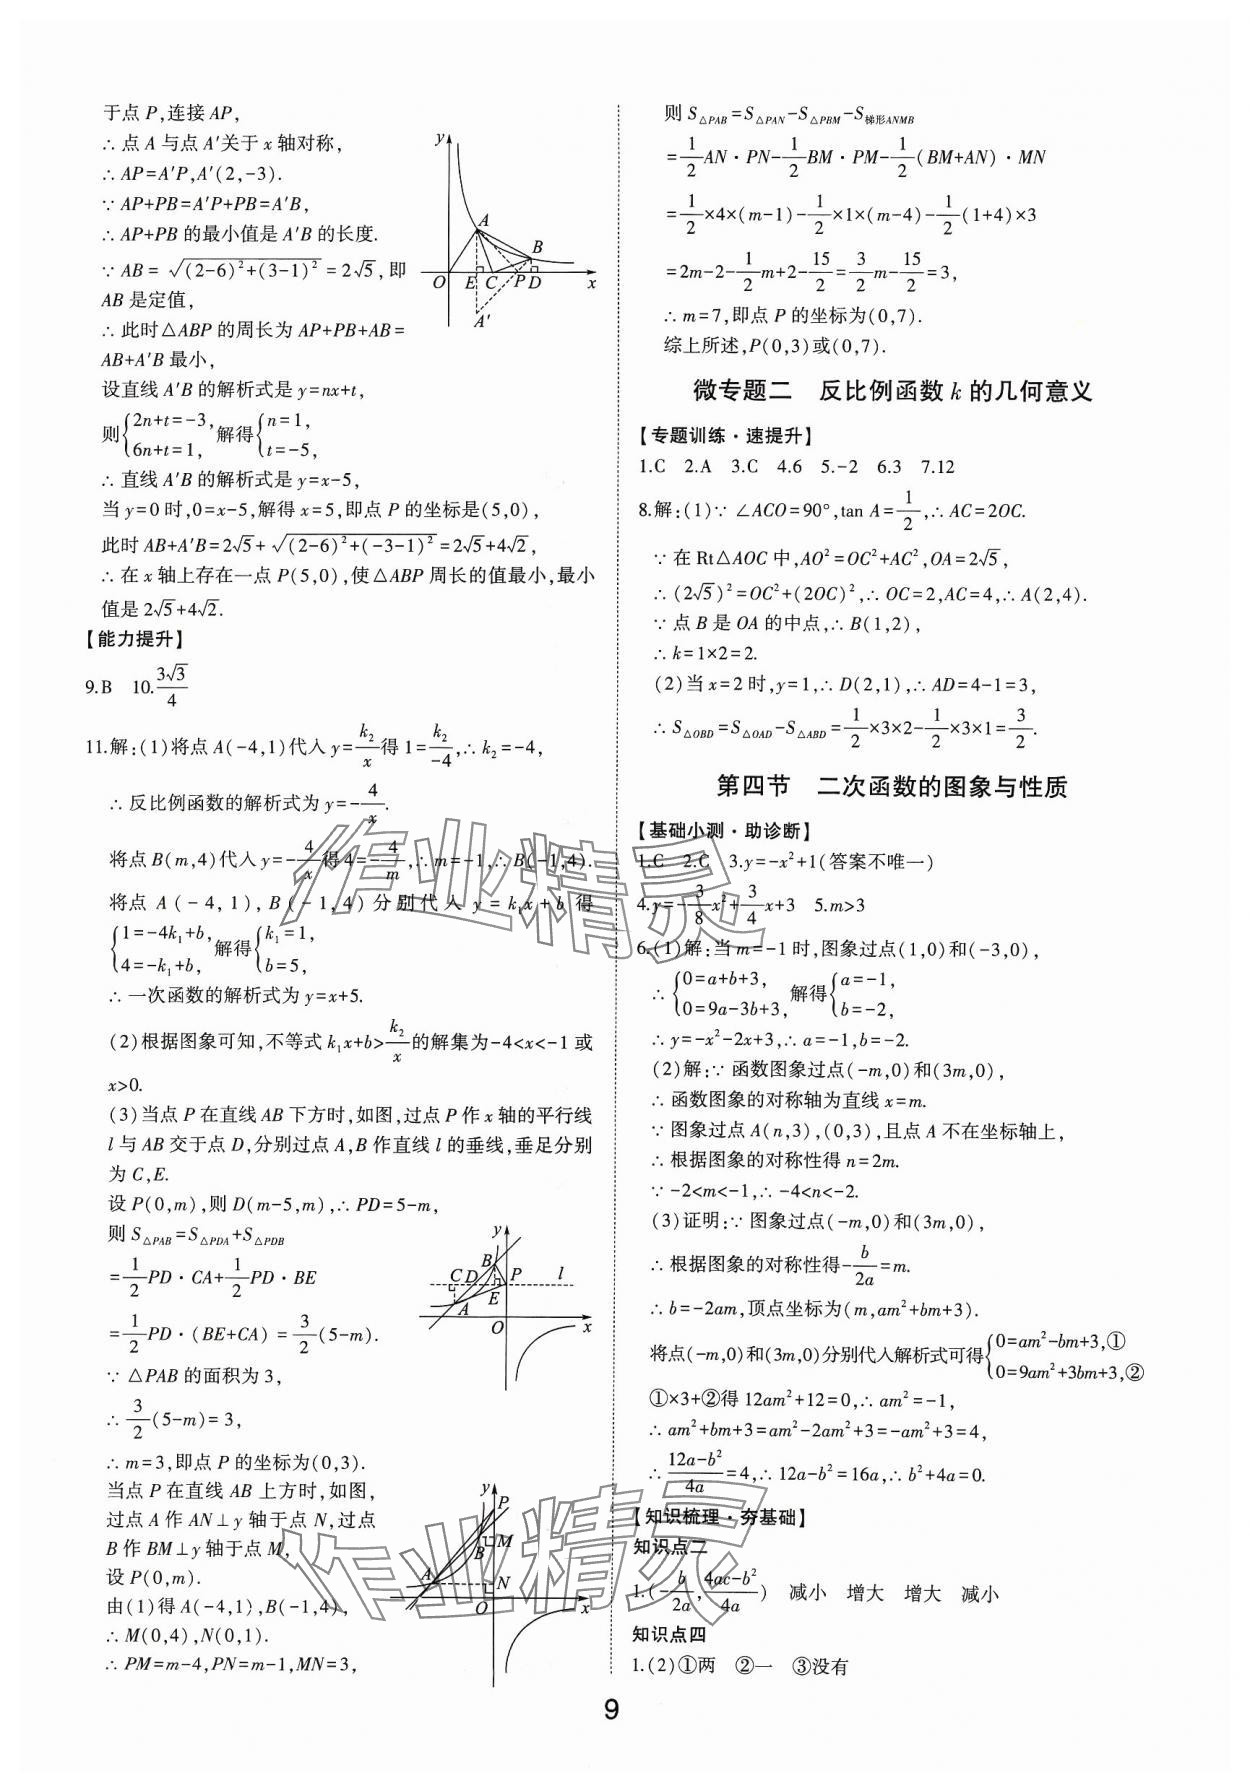 于点 P,连接 AP,
∴ 点 A 与点 A′关于 x 轴对称,
∴ AP=A′P,A′(2,-3).
∵ AP+PB=A′P+PB=A′B,
∴ AP+PB 的最小值是 A′B 的长度.
∵ AB=√((2-6)²+(3-1)²)=2√5,即
AB 是定值,
∴ 此时△ABP 的周长为 AP+PB+AB=
AB+A′B 最小,
设直线 A′B 的解析式是 y=nx+t,
则{2n+t=-3, 6n+t=1, 解得{n=1, t=-5,
∴ 直线 A′B 的解析式是 y=x-5,
当 y=0 时,0=x-5,解得 x=5,即点 P 的坐标是(5,0),
此时 AB+A′B=2√5+√((2-6)²+(-3-1)²)=2√5+4√2,
∴ 在 x 轴上存在一点 P(5,0),使△ABP 周长的值最小,最小
值是 2√5+4√2.
y A B O E C P D x A′
【能力提升】
9.B 10.3√3/4
11.解:(1)将点 A(-4,1)代入 y=k₂/x得 1=k₂/-4,∴ k₂=-4,
∴ 反比例函数的解析式为 y=-4/x.
将点 B(m,4)代入 y=-4/x得 4=-4/m,∴ m=-1,∴ B(-1,4).
将点 A(-4,1),B(-1,4)分别代入 y=k₁x+b 得
{1=-4k₁+b, 4=-k₁+b, 解得{k₁=1, b=5,
∴ 一次函数的解析式为 y=x+5.
(2)根据图象可知,不等式 k₁x+b>k₂/x的解集为-4<x<-1 或
x>0.
(3)当点 P 在直线 AB 下方时,如图,过点 P 作 x 轴的平行线
l 与 AB 交于点 D,分别过点 A,B 作直线 l 的垂线,垂足分别
为 C,E.
设 P(0,m),则 D(m-5,m),∴ PD=5-m,
则 S△PAB=S△PDA+S△PDB
=1/2PD·CA+1/2PD·BE
=1/2PD·(BE+CA)=3/2(5-m).
∵ △PAB 的面积为 3,
∴ 3/2(5-m)=3,
∴ m=3,即点 P 的坐标为(0,3).
y B C D P l A E O x
当点 P 在直线 AB 上方时,如图,
过点 A 作 AN⊥y 轴于点 N,过点
B 作 BM⊥y 轴于点 M,
设 P(0,m).
由(1)得 A(-4,1),B(-1,4),
∴ M(0,4),N(0,1).
∴ PM=m-4,PN=m-1,MN=3,
y P M B A N O x
则 S△PAB=S△PAN-S△PBM-S梯形ANMB
=1/2AN·PN-1/2BM·PM-1/2(BM+AN)·MN
=1/2×4×(m-1)-1/2×1×(m-4)-1/2(1+4)×3
=2m-2-1/2m+2-15/2=3/2m-15/2=3,
∴ m=7,即点 P 的坐标为(0,7).
综上所述,P(0,3)或(0,7).
微专题二 反比例函数 k 的几何意义
【专题训练·速提升】
1.C 2.A 3.C 4.6 5.-2 6.3 7.12
8.解:(1)∵ ∠ACO=90°,tan A=1/2,∴ AC=2OC.
∵ 在 Rt△AOC 中,AO²=OC²+AC²,OA=2√5,
∴ (2√5)²=OC²+(2OC)²,∴ OC=2,AC=4,∴ A(2,4).
∵ 点 B 是 OA 的中点,∴ B(1,2),
∴ k=1×2=2.
(2)当 x=2 时,y=1,∴ D(2,1),∴ AD=4-1=3,
∴ S△OBD=S△OAD-S△ABD=1/2×3×2-1/2×3×1=3/2.
第四节 二次函数的图象与性质
【基础小测·助诊断】
1.C 2.C 3.y=-x²+1(答案不唯一)
4.y=-3/8x²+3/4x+3 5.m>3
6.(1)解:当 m=-1 时,图象过点(1,0)和(-3,0),
∴ {0=a+b+3, 0=9a-3b+3, 解得{a=-1, b=-2,
∴ y=-x²-2x+3,∴ a=-1,b=-2.
(2)解:∵ 函数图象过点(-m,0)和(3m,0),
∴ 函数图象的对称轴为直线 x=m.
∵ 图象过点 A(n,3),(0,3),且点 A 不在坐标轴上,
∴ 根据图象的对称性得 n=2m.
∵ -2<m<-1,∴ -4<n<-2.
(3)证明:∵ 图象过点(-m,0)和(3m,0),
∴ 根据图象的对称性得-b/2a=m.
∴ b=-2am,顶点坐标为(m,am²+bm+3).
将点(-m,0)和(3m,0)分别代入解析式可得{0=am²-bm+3,① 0=9am²+3bm+3,②
①×3+②得 12am²+12=0,∴ am²=-1,
∴ am²+bm+3=am²-2am²+3=-am²+3=4,
∴ 12a-b²/4a=4,∴ 12a-b²=16a,∴ b²+4a=0.
【知识梳理·夯基础】
知识点二
1.(-b/2a,4ac-b²/4a) 减小 增大 增大 减小
知识点四
1.(2)①两 ②一 ③没有
9
作业精灵
作业精灵